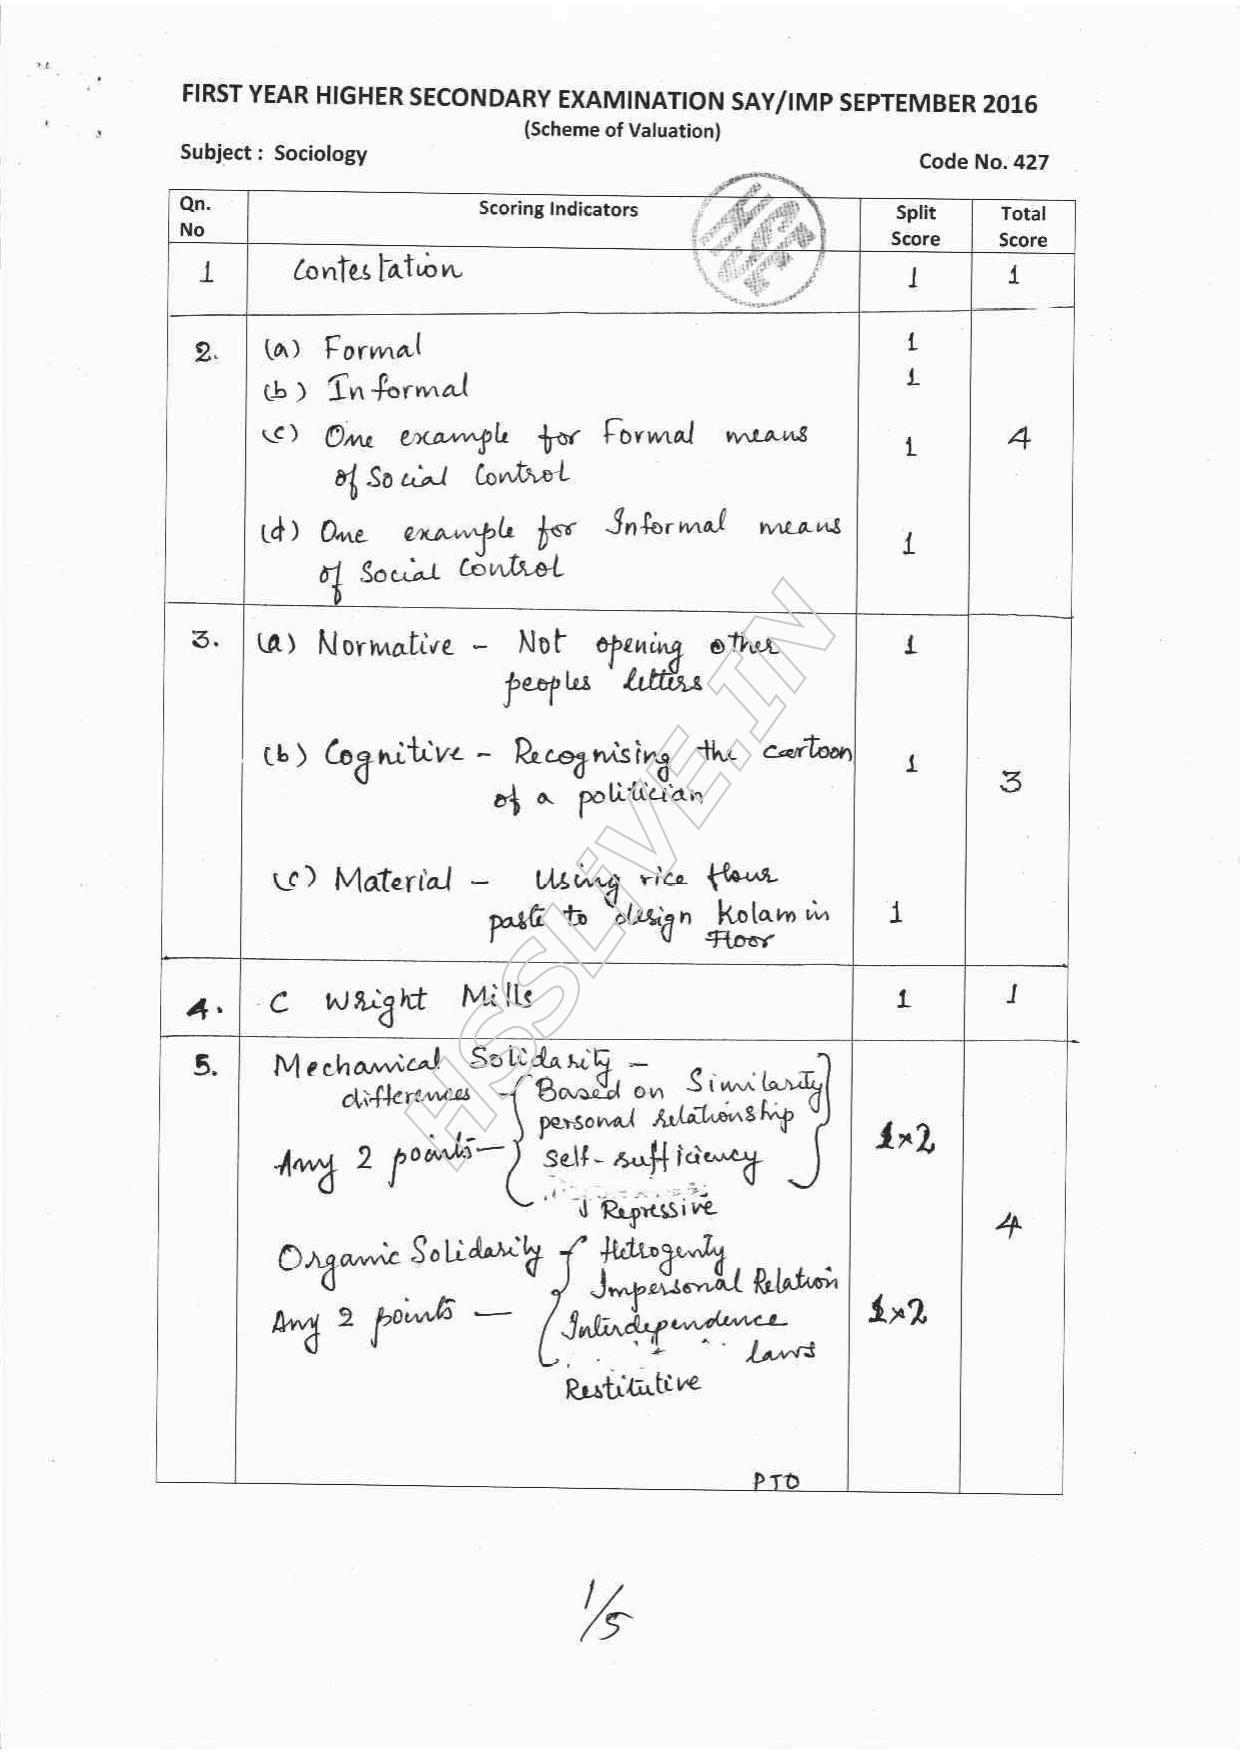 FIRST YEAR HIGHER SECONDARY EXAMINATION SAY/IMP SEPTEMBER 2016
(Scheme of Valuation)
Subject : Sociology
Code No. 427
Qn. No Scoring Indicators Split Score Total Score
1 Contestation 1 1
2. (a) Formal 1
(b) Informal 1
(c) One example for Formal means 1 4
of Social Control
(d) One example for Informal means 1
of Social Control
3. (a) Normative - Not opening other 1
peoples letters
(b) Cognitive - Recognising the cartoon 1
of a politician 3
(c) Material - Using rice flour
paste to design Kolam in 1
Floor
4. C Wright Mills 1 1
5. Mechanical Solidarity -
differences - Based on Similarity
personal relationship 1x2
Any 2 points - self-sufficiency
Repressive 4
Organic Solidarity - Hetrogenty
Impersonal Relation
Any 2 points - Interdependence 1x2
laws
Restitutive
PTO
1/5
HSSLiVE.IN